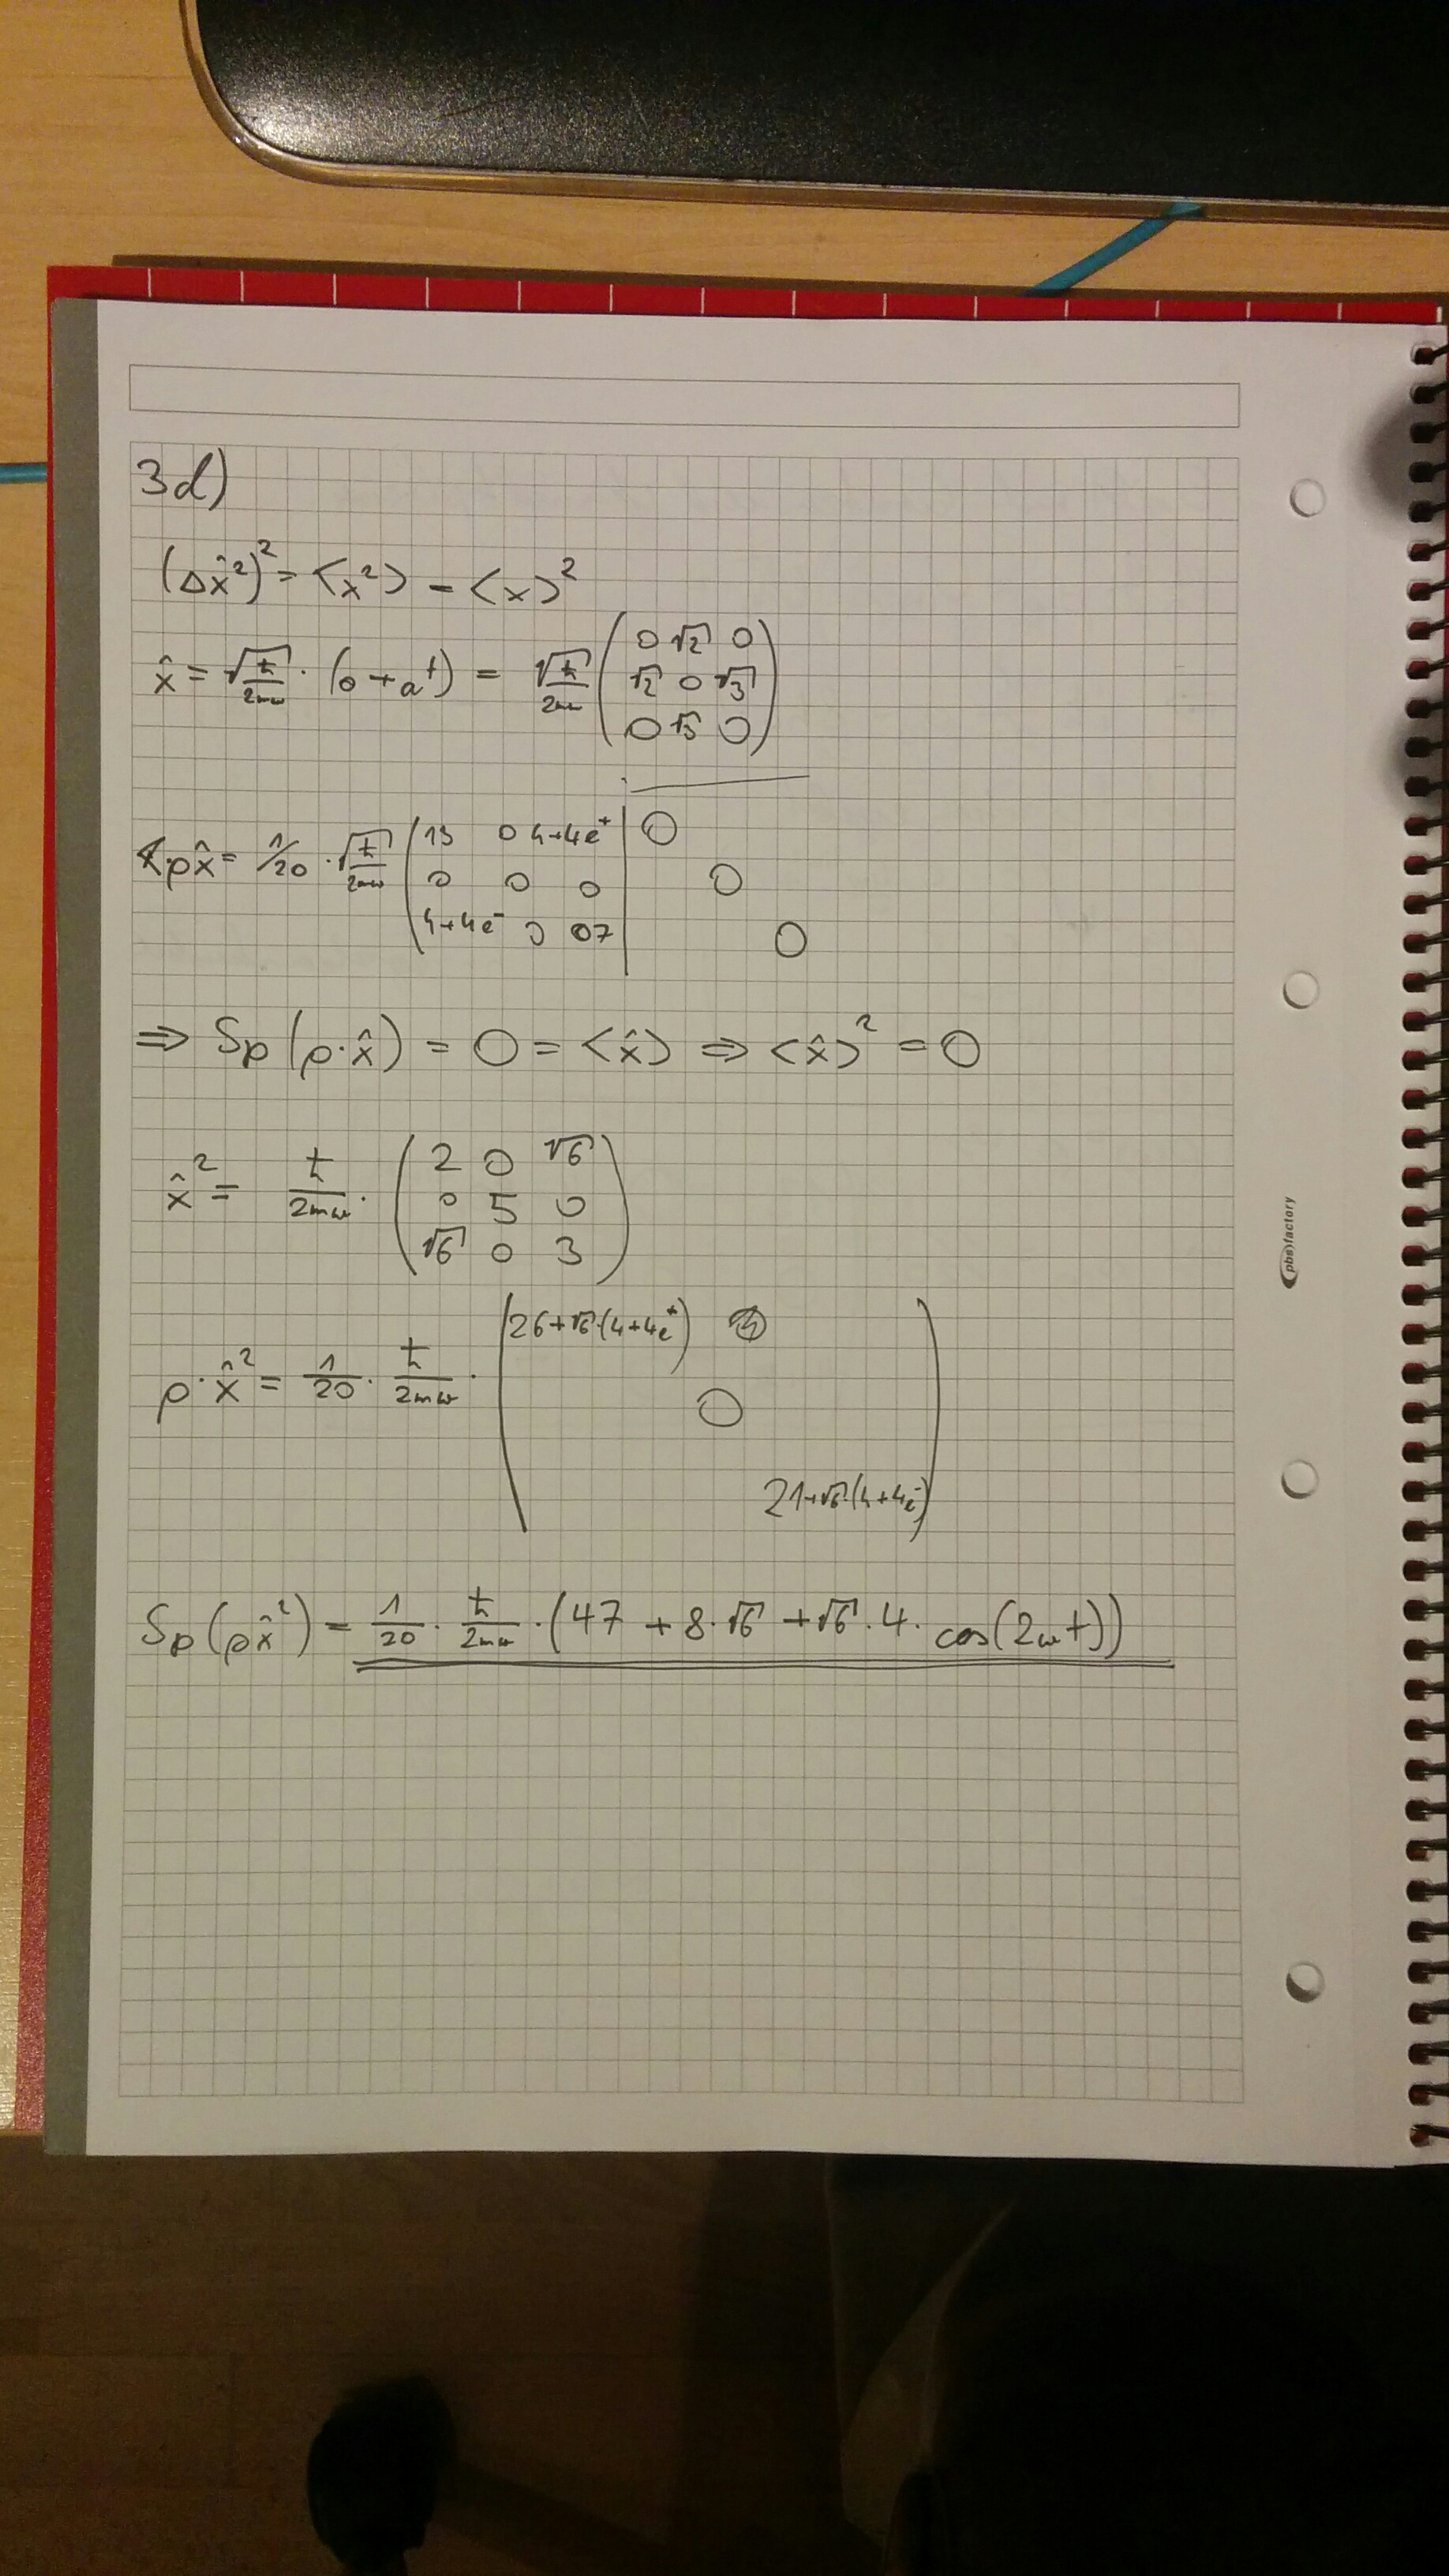 3d)
(Δx̂²)² = <x²> - <x>²
x̂ = √ħ/2mω · (a + a†) = √ħ/2mω (0 √2 0
√2 0 √3
0 √3 0)
ρx̂ = 1/20 · √ħ/2mω (13 0 4+4e⁺ | 0
0 0 0 | 0
4+4e⁻ 0 07 | 0
⇒ Sp(ρ·x̂) = 0 = <x̂> ⇒ <x̂>² = 0
x̂² = ħ/2mω · (2 0 √6
0 5 0
√6 0 3)
ρ·x̂² = 1/20 · ħ/2mω · (26+√6·(4+4e⁺)
0
21+√6·(4+4e⁻))
Sp(ρx̂²) = 1/20 · ħ/2mω · (47 + 8·√6 + √6·4· cos(2ωt))
pbs factory